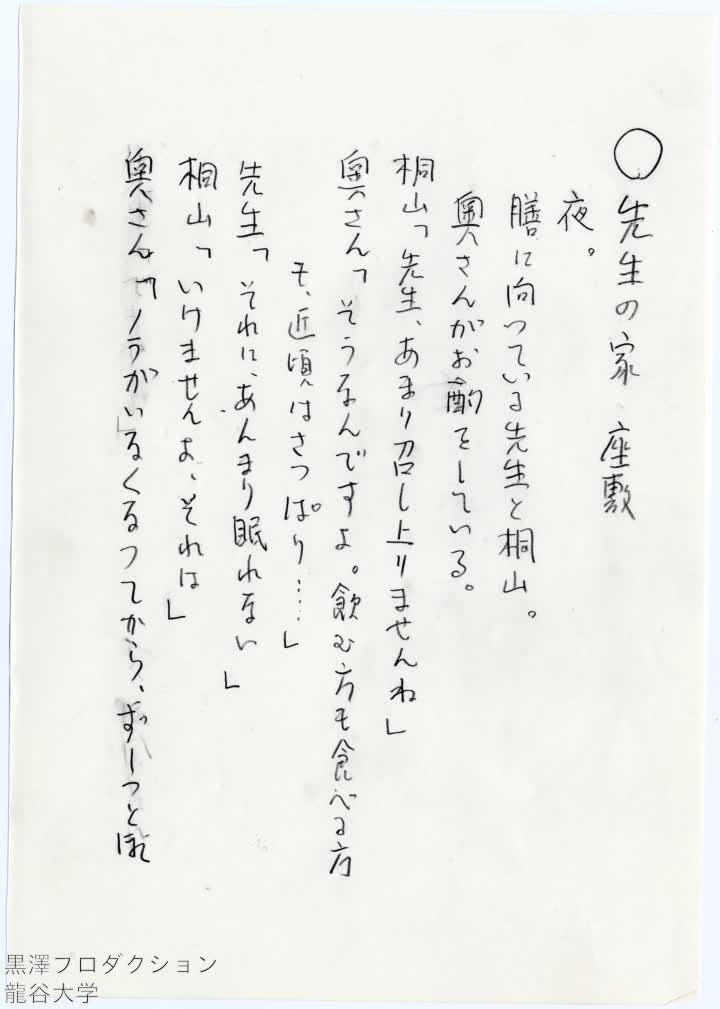 ○先生の家 座敷
夜。
膳に向っている先生と桐山。
奥さんがお酌をしている。
桐山「先生、あまり召し上りませんね」
奥さん「そうなんですよ。飲む方も食べる方
も、近頃はさっぱり……」
先生「それに、あんまり眠れない」
桐山「いけませんよ、それは」
奥さん「『ノラがいなくなってから、ずーっと
黒澤プロダクション
龍谷大学